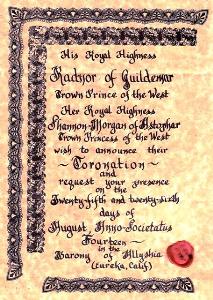 His Royal Highness
Radnor of Guildemar
Crown Prince of the West
Her Royal Highness
Shannon-Morgan of
Crown Princess of the West
wish to announce their
~ Coronation ~
and
request your presence
on the
Twenty-fifth and twenty-sixth
days of
August Anno-Societatus
Fourteen
in the
Barony of Allyshia
(Eureka, Calif)